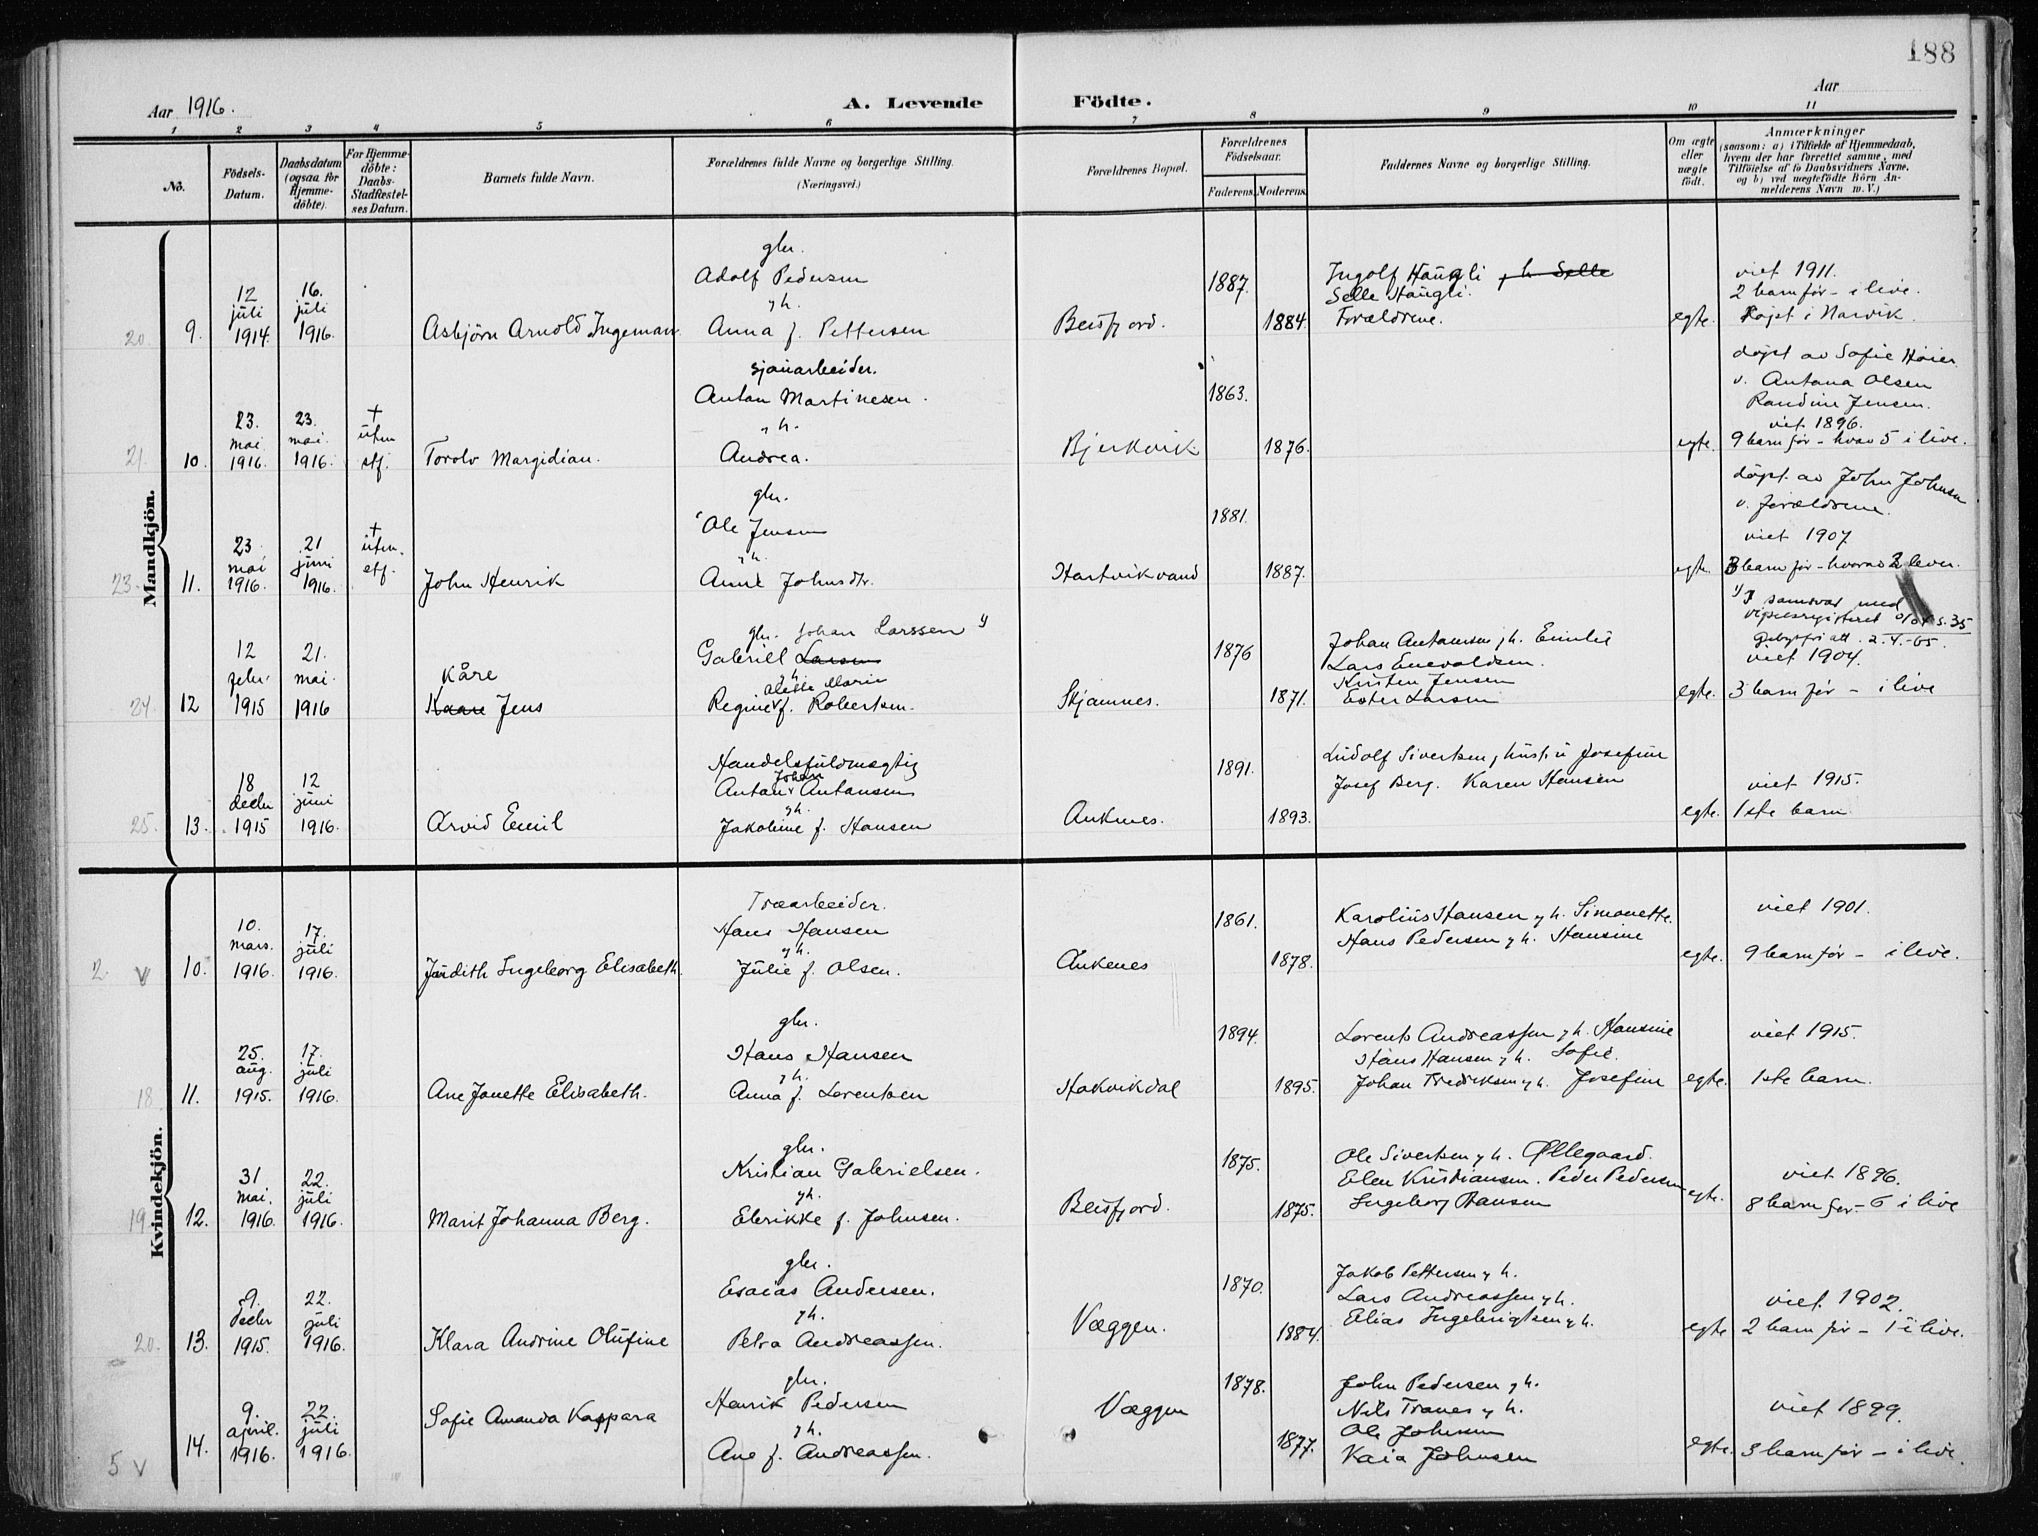 188
Aar 1916.
A. Levende Födte.
Aar
1 2 3 4 5 6 7 8 9 10 11
No.
Födsels-Datum.
Daabsdatum (ogsaa for Hjemme-döbte).
For Hjemme-döbte: Daabs-Stadfæstel-ses Datum.
Barnets fulde Navn.
Forældrenes fulde Navne og borgerlige Stilling.
(Næringsvei.)
Forældrenes Bopæl.
Forældrenes Födselsaar.
Faderens. Moderens.
Faddernes Navne og borgerlige Stilling.
Om ægte eller uægte födt.
Anmærkninger
(saasom: a) i Tilfælde af Hjemmedaab, hvem der har forrettet samme, med Tilföielse af to Daabsvidners Navne, og b) ved uægtefödte Börn An-melderens Navn m. V.)
Mandkjön.
gbr.
Adolf Pedersen 1887. Ingolf Haugli
12 juli 1914. 16. juli 1916. Selle Haugli. viet 1911.
2 barn før - i live.
20 9. Asbjörn Arnold Ingemar. Anna f. Pettersen Beisfjord. 1884. Forældrene. egte. Døpt i Narvik.
sjauarbeider. døpt av Sofie Höier
Anton Martinesen. 1863. v. Antona Olsen
23. mai 1916. 23. mai. 1916. + uten stf. h. Randine Jensen.
viet 1896.
21. 10. Torolv Margidian. Andrea. Bjerkvik 1876. egte. 9 barn før - hvav 5 i live.
gbr. døpt av John Johnsen
Ole Jensen 1881. v. forældrene.
23 mai 1916. 21 juni 1916. + uten stf. viet 1907
23. 11. John Henrik Anne Johnsdtr. Hartvikvand 1887. egte. 3 barn før - hvorav 2 lever.
1) I samsvar med
gbr. Johan Larssen 1) s. 35
Gabriel Larsen 1876 Johan Antonsen h. Emilie 2.-4.-65.
12 febr. 1915 21. mai 1916 Kåre Lars Enevoldsen. viet 1904.
Alette Marie Kristen Jensen
24. 12 Kaare Jens Regine f. Robertsen. Skjomnes. 1871. Ester Larsen egte. 3 barn før - i live
Handelsfuldmægtig Ludolf Sivertsen hustru Josefine
Johan
18 decbr 1915 12 juni 1916. Anton Antonsen 1891. Josef Berg. Karen Hansen viet 1915.
25. 13. Arvid Emil Jakobine f. Hansen Ankenes. 1893. egte. 1ste barn
Kvindekjön.
Træarbeider.
10. mars. 1916. 17. juli 1916. Hans Hansen 1861. Karolius Hansen h. Simonette. viet 1901.
Hans Pedersen h. Hansine
2 v 10. Judith Ingeborg Elisabeth. Julie f. Olsen. Ankenes 1878. egte. 9 barn før - i live.
gbr.
25. aug. 1915. 17. juli 1916. Hans Hansen 1894. Lorents Andreassen h. Hansine viet 1915.
Hans Hansen h. Sofie.
18 11. Ane Jonette Elisabeth. Anna f. Lorentsen Haakvikdal 1895. Johan Fredriksen h. Josefine egte. 1ste barn.
gbr.
31 mai. 1916. 22. juli 1916. Kristian Gabrielsen. 1875. Ole Sivertsen h. Øllegaard.
Elen Kristiansen. Peder Pedersen viet 1896.
19 12. Marit Johanna Berg. Elerikke f. Johnsen. Beisfjord. 1875. Ingeborg Hansen egte. 8 barn før - 6 i live
gbr.
9. decbr 1915. 22. juli 1916. Esaias Andersen. 1870. Jakob Pettersen h.
Lars Andreassen h. viet 1902.
20. 13. Klara Andrine Olufine Petra Andreassen. Væggen. 1884. Elias Ingebrigtsen h. egte 2 barn før - 1 i live.
gbr.
9. april. 1916. 22. juli 1916. Henrik Pedersen 1878. John Pedersen h.
Nils Tranes h. viet 1899.
5 v 14. Sofie Amanda Kaspara h. Væggen Ole Johnsen
Ane f. Andreassen. 1877. Kaia Johnsen egte. 3 barn før - i live.